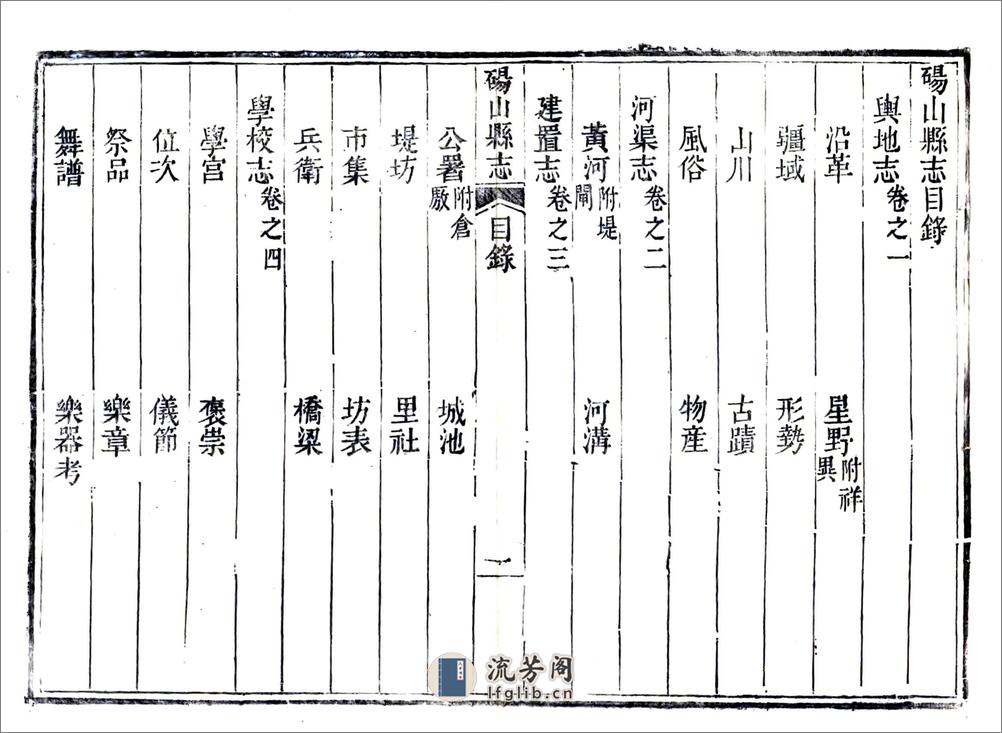 碭山縣志目錄
輿地志卷之一
沿革 星野附祥異
疆域 形勢
山川 古蹟
風俗 物産
河渠志卷之二
黃河附堤閘 河溝
建置志卷之三
碭山縣志 目錄 一
公署附倉厫 城池
堤坊 里社
市集 坊表
兵衛 橋梁
學校志卷之四
學宮 褒崇
位次 儀節
祭品 樂章
舞譜 樂器考
流芳阁
lfglib.cn